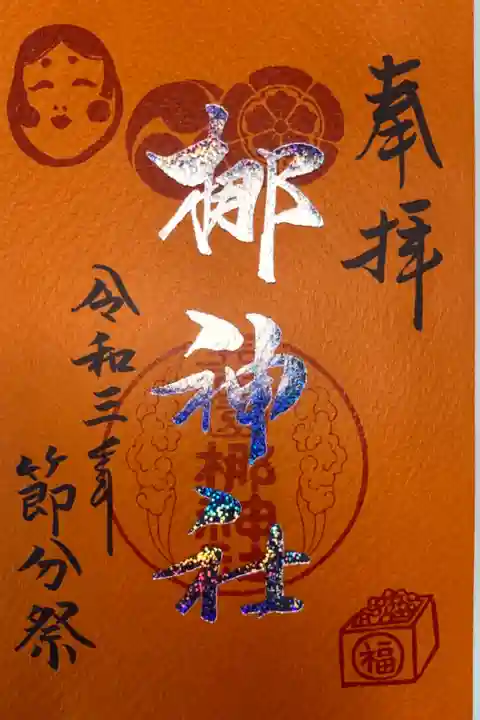 奉拝
梛神社
令和三年
節分祭
梛神社
福